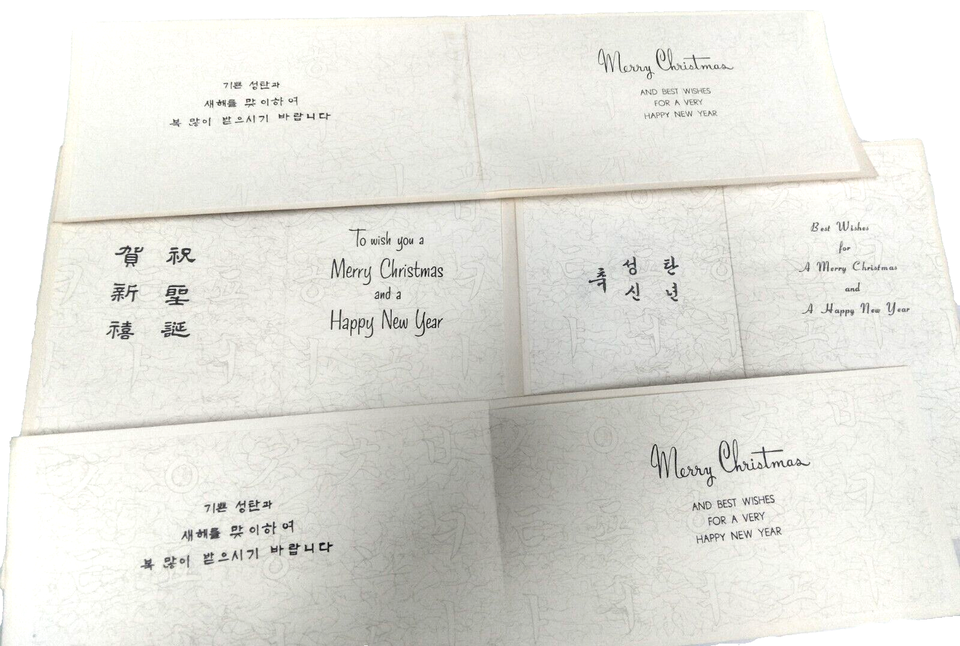 기쁜 성탄과
새해를 맞이하여
복 많이 받으시기 바랍니다
Merry Christmas
AND BEST WISHES
FOR A VERY
HAPPY NEW YEAR
賀 祝
新 聖
禧 誕
To wish you a
Merry Christmas
and a
Happy New Year
축 성 탄
신 년
Best Wishes
for
A Merry Christmas
and
A Happy New Year
기쁜 성탄과
새해를 맞이하여
복 많이 받으시기 바랍니다
Merry Christmas
AND BEST WISHES
FOR A VERY
HAPPY NEW YEAR